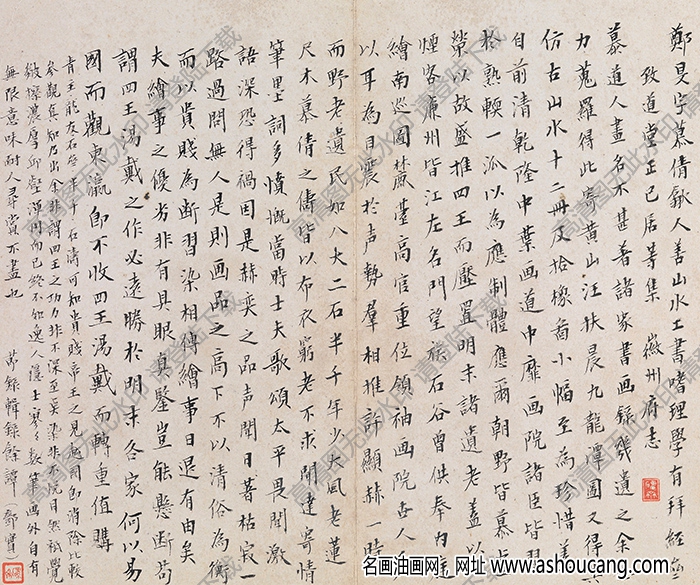 鄭旻字慕倩歙人善山水工書嗜理學有拜經
致道堂正己居等集 徽州府志
慕道人畫名不甚著諸家書画錄幾遺之余
力蒐羅得此寄黃山汪扶晨九龍潭圖又得
仿古山水十二冊及拾橡圖小幅至為珍惜
自前清乾隆中葉画道中靡画院諸臣皆習
於熟輭一派以為應制體應爾朝野皆慕
榮以故盛推四王而壓置明末諸遺老蓋以
煙客廉州皆江左名門望族石谷曾供奉內
繪南巡圖麓臺高官重位領袖画院世人
以耳為目震於声勢羣相推許顯赫一時
而野老遺民如八大二石半千年少大風老蓮
尺木慕倩之儔皆以布衣窮老不求聞達寄情
筆墨詞多憤慨當時士夫歌頌太平畏聞激
語深恐得禍因是赫奕之品声聞日著枯寂一
路過問無人是則画品之高下不以清俗為衡
而以貴賤為斷習染相傳繪事日退有由矣
夫繪事之優劣非有具眼真鑒豈能懸斷苟
謂四王湯戴之作必遠勝於明末各家何以易
國而觀東瀛即不收四王湯戴而轉重值購
青主龍友石谿半千石濤可知貴賤帝王之見無關即消除比較
參觀真知乃出余非謂四王之功力非不深至奚染非不悅目然祇覺
無限意味耐人尋賞不盡也 鄧實
名画油画网，网址 www.ashoucang.com